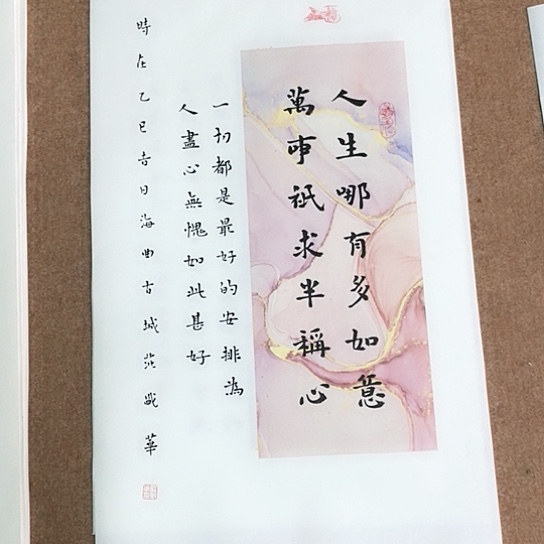 人生哪有多如意
萬事祇求半稱心
一切都是最好的安排為
人盡心無愧如此甚好
時在乙巳吉日海曲古城
華